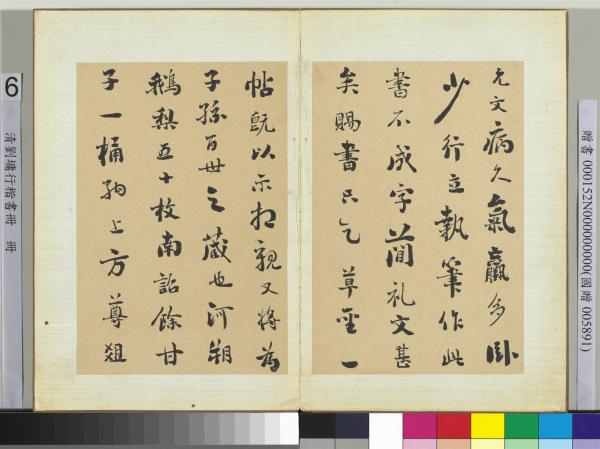 贈書 000152N000000000(國贈 005891)
文病久氣羸多卧
少行立執筆作此
書不成字簡礼文甚
矣賜書只乞草聖一
帖既以示親又將為
子孫百世之藏也河朔
鵝梨五十枚南詔餘甘
子一桶上方尊俎
6
清劉墉行楷書冊 冊